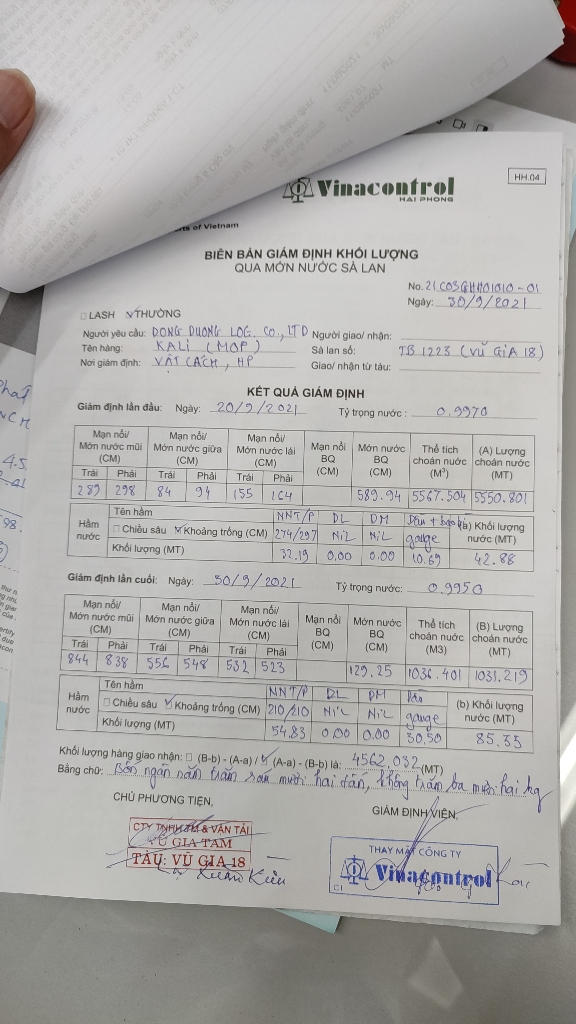 HH.04
Vinacontrol
HAI PHONG
of Vietnam
BIÊN BẢN GIÁM ĐỊNH KHỐI LƯỢNG
QUA MỚN NƯỚC SÀ LAN
No. 21C03GHH01010-01
Ngày: 30/9/2021
LASH THƯỜNG
Người yêu cầu: DONG DUONG LOG. CO., LTD Người giao/ nhận:
Tên hàng: KALI (MOP) Sà lan số: TB 1223 (VŨ GIA 18)
Nơi giám định: VẬT CÁCH, HP Giao/ nhận từ tàu:
KẾT QUẢ GIÁM ĐỊNH
Giám định lần đầu: Ngày: 20/9/2021 Tỷ trọng nước: 0.9970
Mạn nổi/ Mớn nước mũi (CM) Mạn nổi/ Mớn nước giữa (CM) Mạn nổi/ Mớn nước lái (CM) Mạn nổi BQ (CM) Mớn nước BQ (CM) Thể tích choán nước (M³) (A) Lượng choán nước (MT)
Trái Phải Trái Phải Trái Phải
289 298 84 94 155 164 589.94 5567.504 5550.801
Hầm nước Tên hầm NNT/P DL DM (a) Khối lượng nước (MT)
Chiều sâu Khoảng trống (CM) 274/297 NiL NiL gauge
Khối lượng (MT) 32.19 0.00 0.00 10.69 42.88
Giám định lần cuối: Ngày: 30/9/2021 Tỷ trọng nước: 0.9950
Mạn nổi/ Mớn nước mũi (CM) Mạn nổi/ Mớn nước giữa (CM) Mạn nổi/ Mớn nước lái (CM) Mạn nổi BQ (CM) Mớn nước BQ (CM) Thể tích choán nước (M3) (B) Lượng choán nước (MT)
Trái Phải Trái Phải Trái Phải
844 838 556 548 532 523 129.25 1036.401 1031.219
Hầm nước Tên hầm NNT/P DL DM (b) Khối lượng nước (MT)
Chiều sâu Khoảng trống (CM) 210/210 NiL NiL gauge
Khối lượng (MT) 54.83 0.00 0.00 30.50 85.35
Khối lượng hàng giao nhận: (B-b) - (A-a) / (A-a) - (B-b) là: 4562.032 (MT)
Bằng chữ: Bốn ngàn năm trăm sáu mươi hai tấn, không trăm ba mươi hai kg
CHỦ PHƯƠNG TIỆN, GIÁM ĐỊNH VIÊN,
CTY TNHH TM & VẬN TẢI
VŨ GIA TAM
TÀU: VŨ GIA 18
THAY MẶT CÔNG TY
Vinacontrol